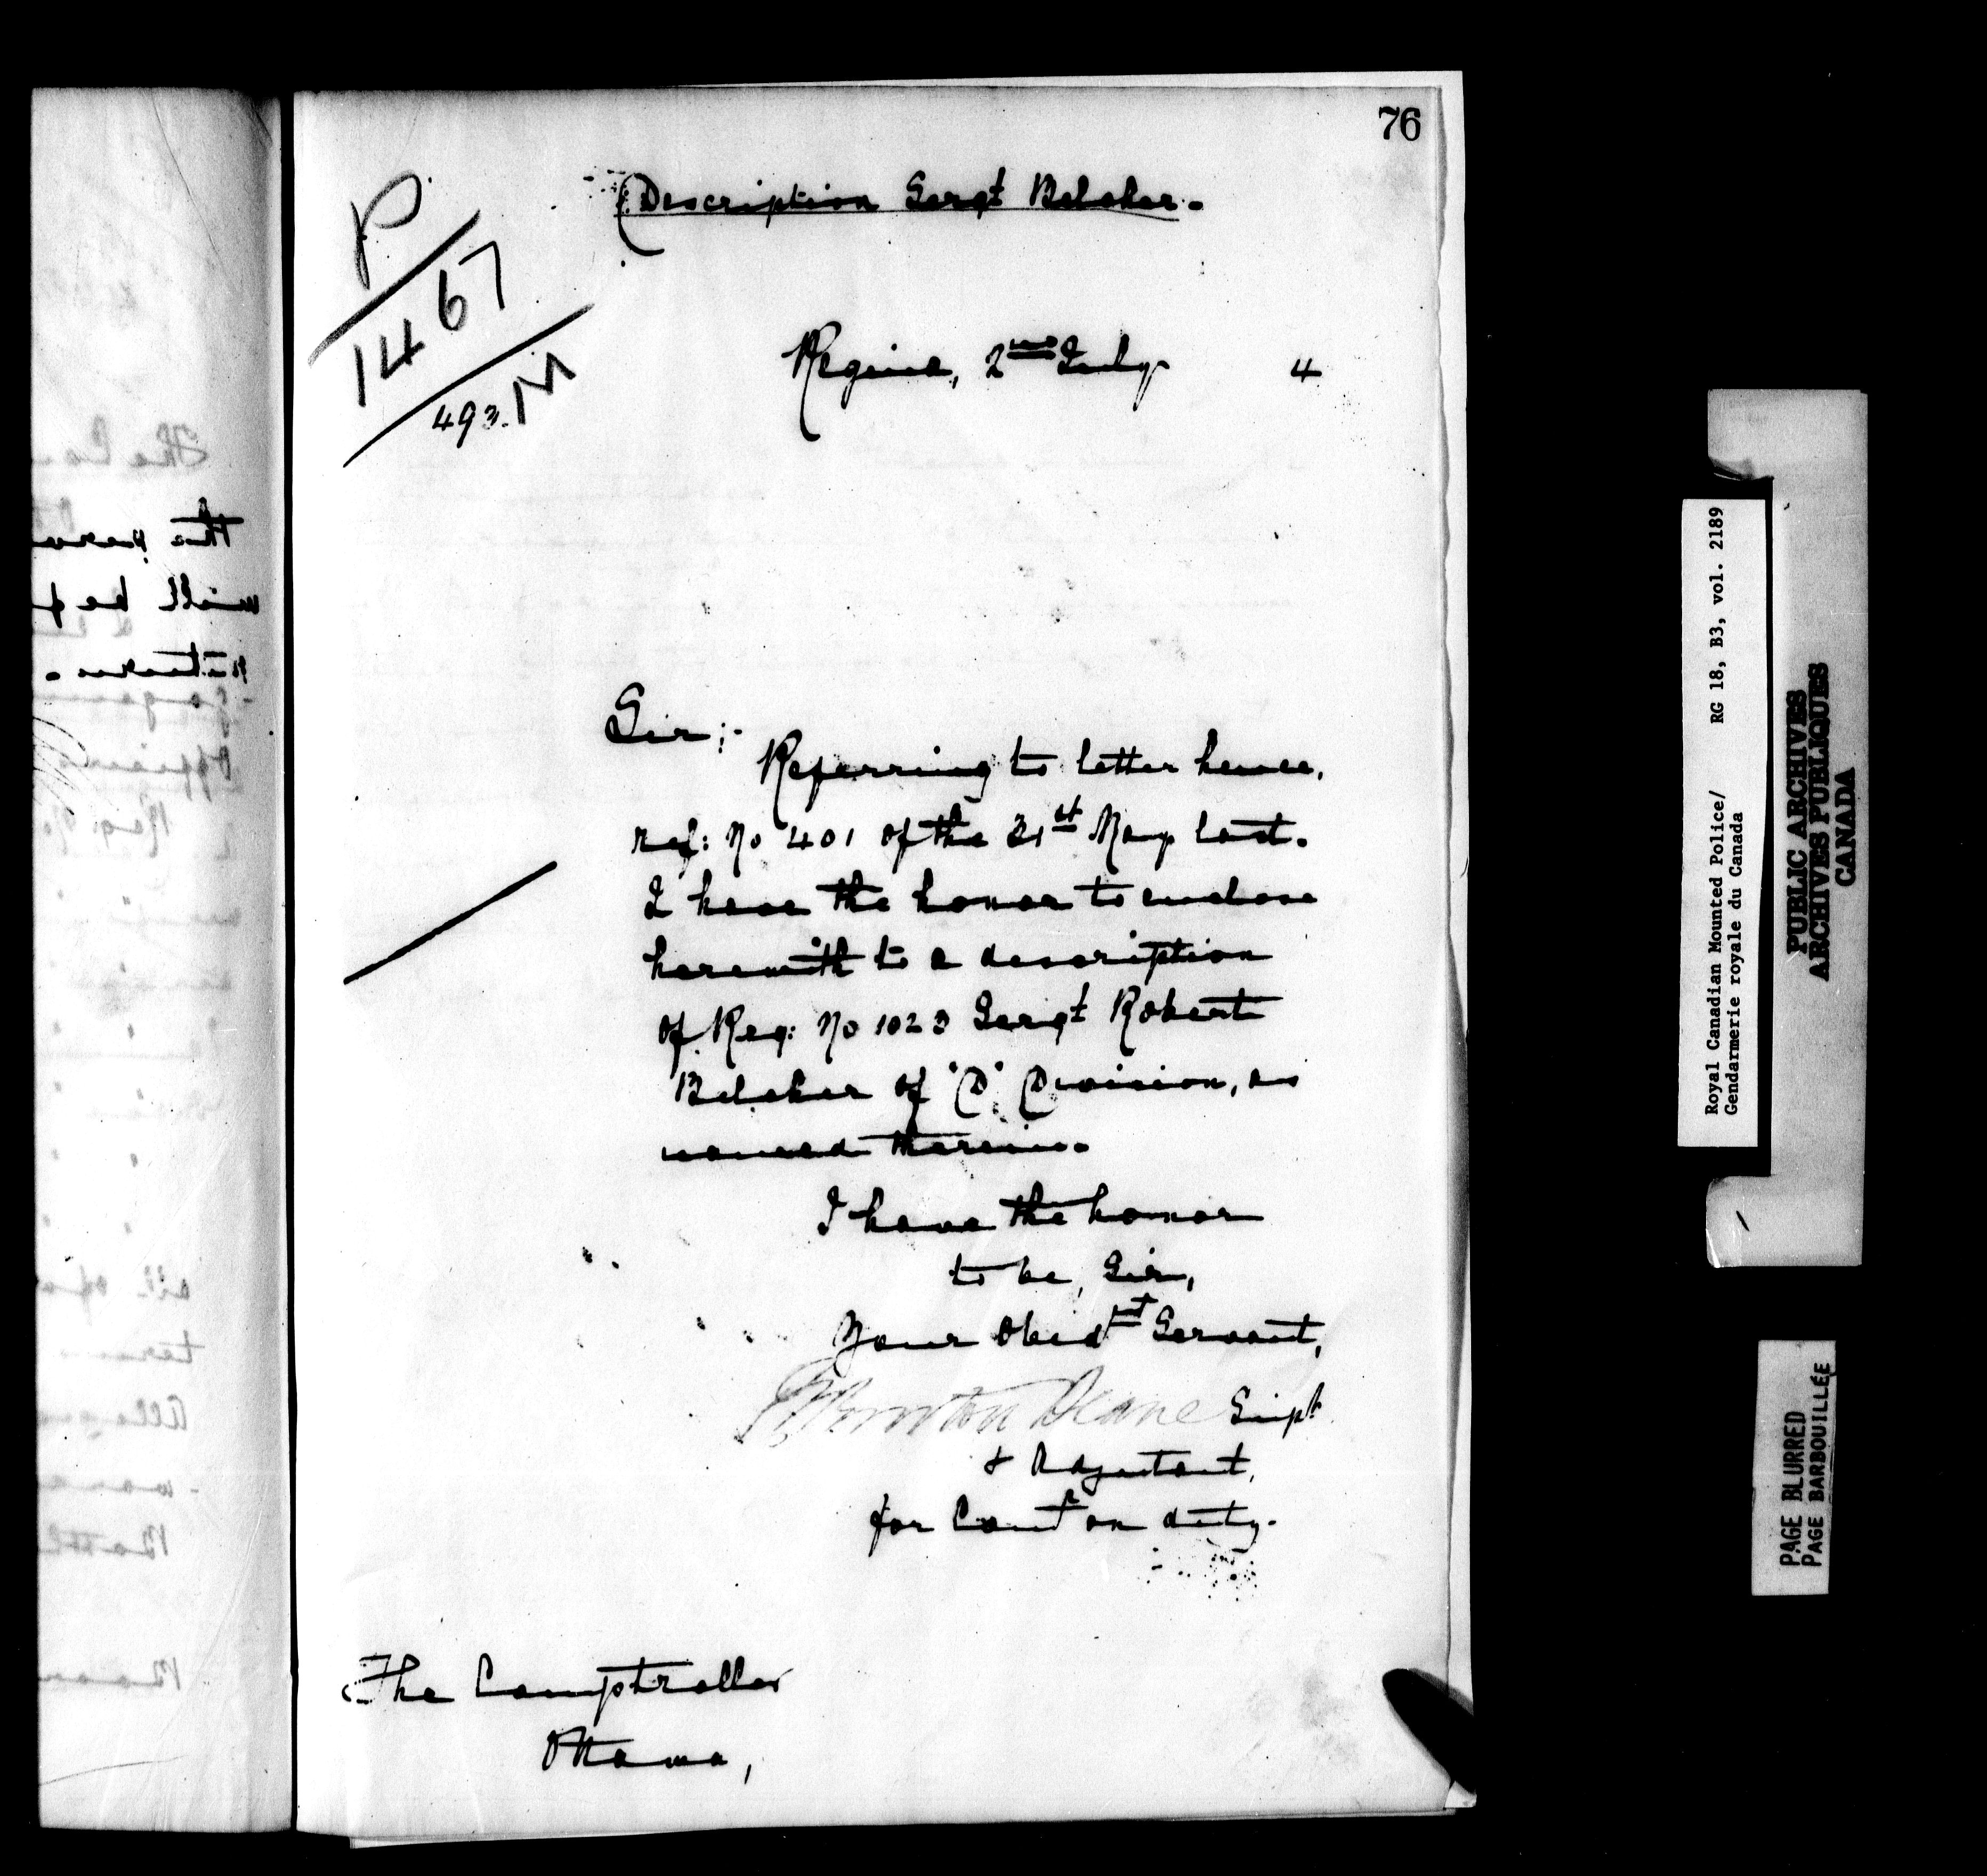 76
Description Sergt Belcher.
P
1467
493. M
Regina, 2nd July 4
Sir;-
Referring to letter hence,
ref: No 401 of the 31st May last.
I have the honor to enclose
herewith to a description
of Reg: No 1023 Sergt Robert
Belcher of "D" Division, as
named therein.
I have the honor
to be, Sir,
Your Obedt Servant,
Burton Deane Supt
& Adjutant,
for Comr on duty.
The Comptroller
Ottawa,
Royal Canadian Mounted Police/ RG 18, B3, vol. 2189
Gendarmerie royale du Canada
PUBLIC ARCHIVES
ARCHIVES PUBLIQUES
CANADA
PAGE BLURRED
PAGE BARBOUILLÉE